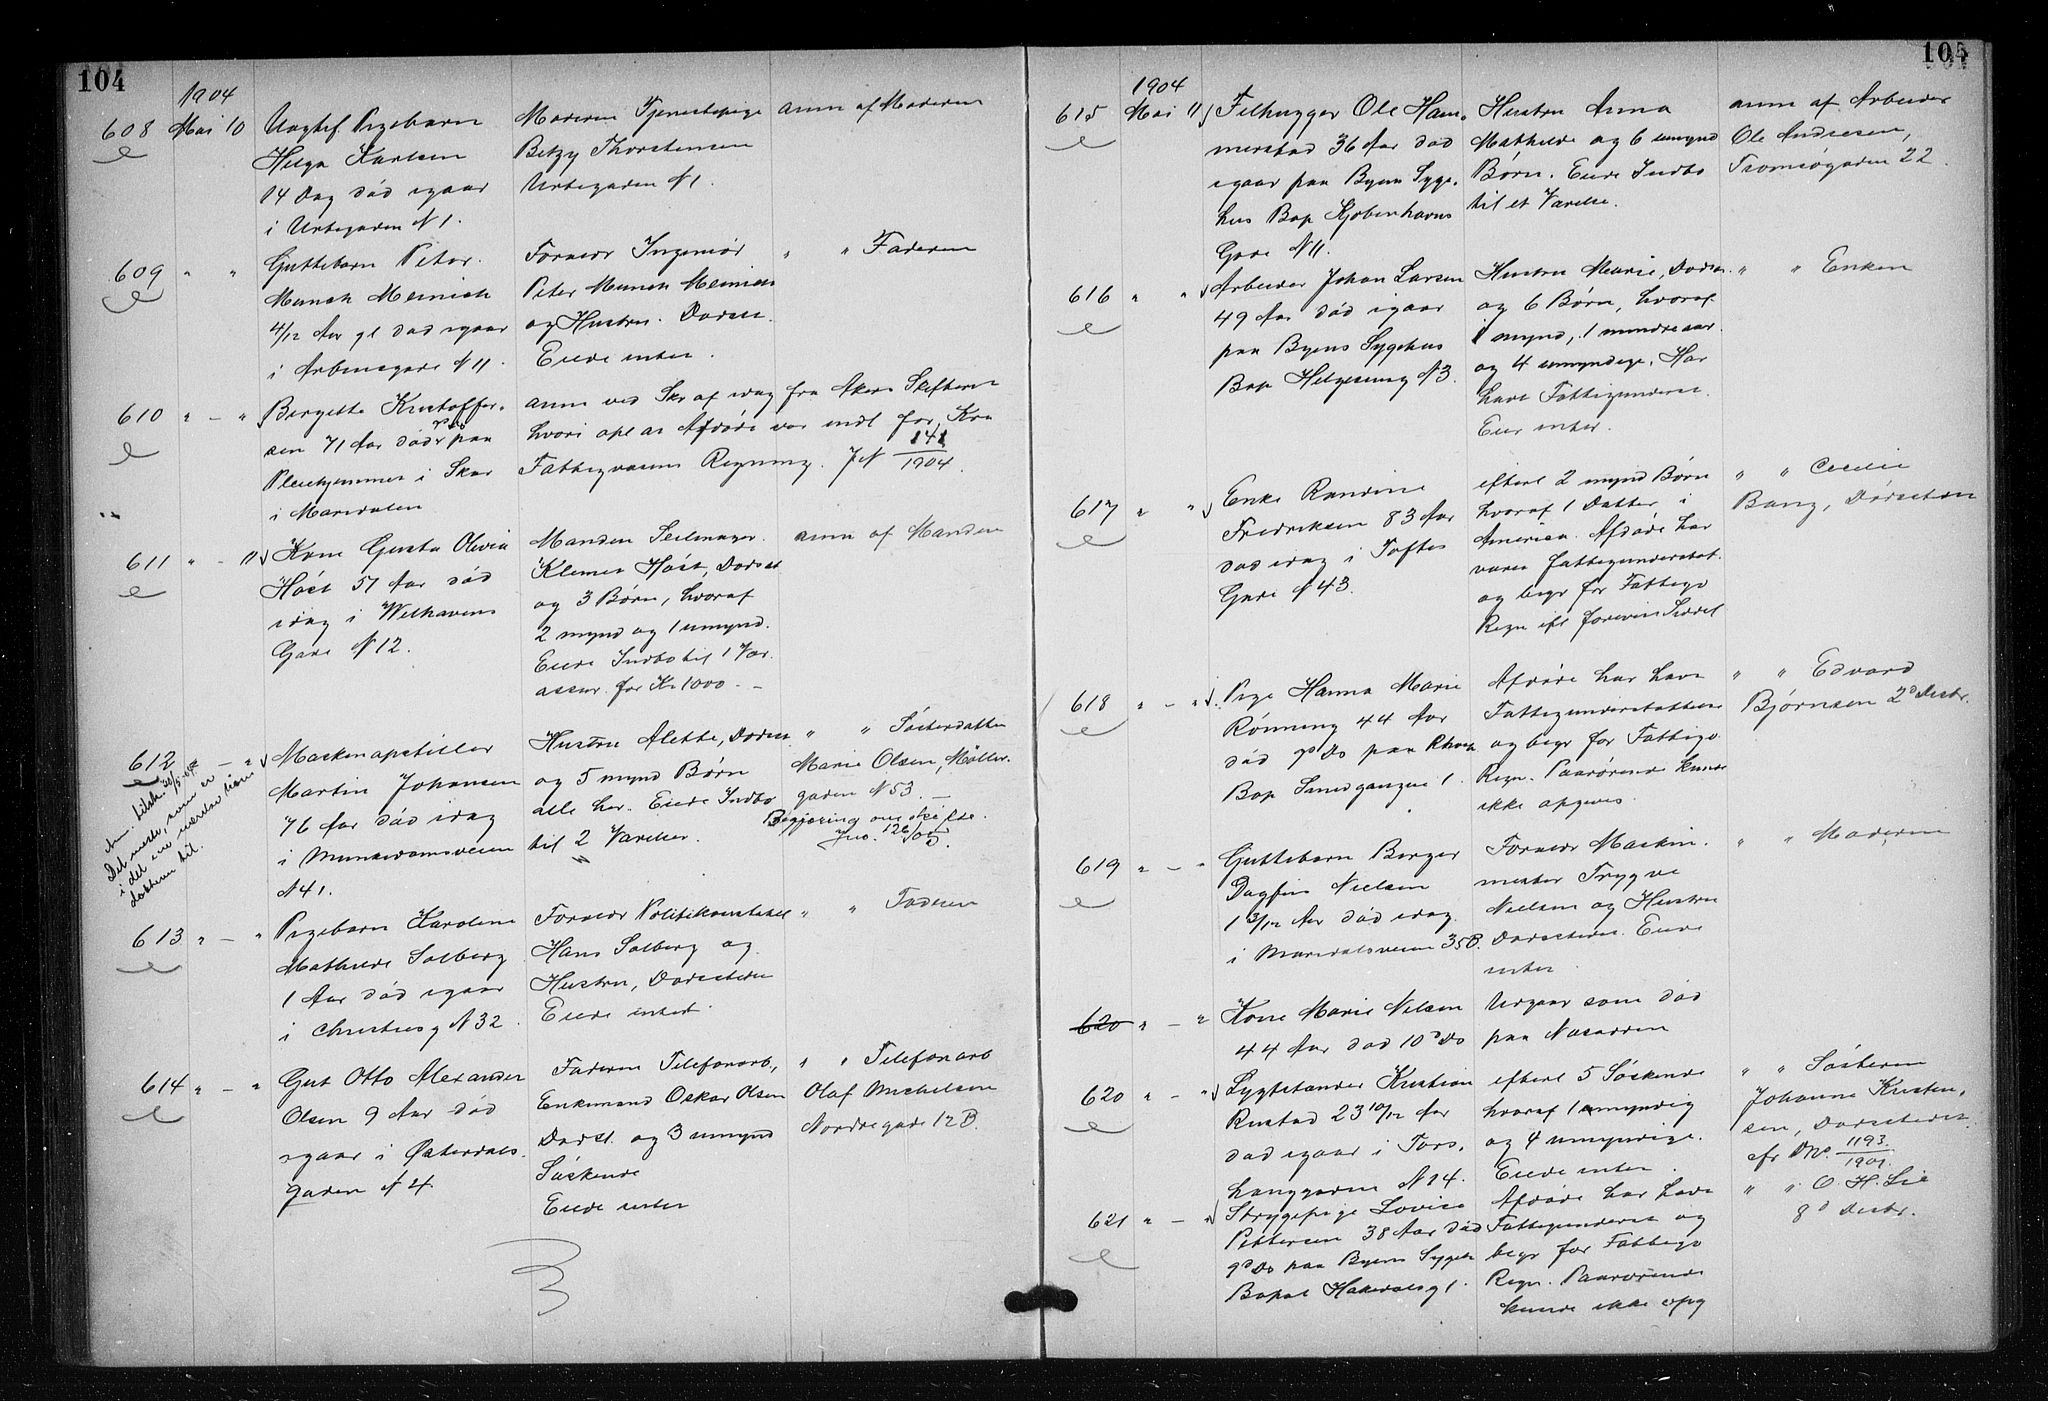 104
1904
608 Mai 10 Uægtef Pigebarn
Helga Karlsen
14 Dag død igaar
i Urtegaden N 1.
Moderen Tjenestepige
Betzy Thorstensen
Urtegaden N 1.
anm af Moderen
609 " " Guttebarn Peter
Munch Meinich
4/12 Aar gl død igaar
i Arbinsgade N 11.
Forældr Ingeniør
Peter Munch Meinich
og Hustru. Dødsst.
Eiede intet.
" " Faderen
610 " - " Bergitte Kristoffer-
sen 71 Aar død paa
Pleiehjemmet i Skar
i Maridalen
anm ved Skr af idag fra Akers Skifteret
hvori opl at Afdøde var indl for Kra
Fattigvæsens Regning. JN 141/1904.
611 " - " Kone Gusta Olivia
Høst 57 Aar død
idag i Welhavens
Gade N 12.
Manden Seilmager
Klemet Høst, Dødsst
og 3 Børn, hvoraf
2 mynd og 1 umynd.
Eiede Indbo til 1 Vær.
assur. for Kr 1000. –
anm af Manden
612 - " Maskinopstiller
Martin Johansen
76 Aar død idag
i Munkedamsveien
N 41.
Hustru Alette, Dødsst
og 5 mynd Børn
alle her. Eiede Indbo
til 2 Værelser.
" " Søsterdatter
Marie Olsen, Møller-
gaden N 53. –
Begjæring om skifte.
Jno. 126/05.
Det meste, som er
i det ene værelse hører
datteren til.
613 " - " Pigebarn Karoline
Mathilde Solberg
1 Aar død igaar
i Christiesg N 32.
Forældr Politikonstabel
Hans Solberg og
Hustru, Dødsstedet
Eiede intet.
" " Faderen
614 " - " Gut Otto Alexander
Olsen 9 Aar død
igaar i Østerdals-
gaden N 4.
Faderen Telefonarb,
Enkemand Oskar Olsen
Dødsst. og 3 umynd
Søskende
Eiede intet
" " Telefonarb
Olaf Michelsen
Nordregade 12 B.
105
1904
615 Mai 11 Filhugger Ole Ham-
merstad 36 Aar død
igaar paa Byens Syge-
hus Bop Kjøbenhavns
Gade N 11.
Hustru Anna
Mathilde og 6 umynd
Børn. Eiede Indbo
til et Værelse.
anm af Arbeider
Ole Andresen,
Tromsøgaden 22.
616 " " Arbeider Johan Larsen
49 Aar død igaar
paa Byens Sygehus
Bop Helgesensg N 3.
Hustru Marie, Dødsst.
og 6 Børn, hvoraf
1 mynd, 1 mindreaar.
og 4 umyndige. Har
havt Fattigunderst.
Eier intet.
" " Enken
617 " " Enke Randine
Fredriksen 83 Aar
død idag i Toftes
Gade N 43.
efterl 2 mynd Børn
hvoraf 1 Datter i
Amerika. Afdøde har
været fattigunderstøt.
og begr for Fattigv
Regn ifl forevist Seddel
" " Cecilie
Bang, Dødsstedn
618 " - " Pige Hanna Marie
Rønning 44 Aar
død 7d Ds paa Rhosp
Bop Smedgangen 1.
Afdøde har havt
Fattigunderstøttelse
og begr for Fattigv
Regn. Paarørende kunde
ikke opgives.
" " Edvard
Bjørnsen 2d Distr.
619 " - " Guttebarn Borger
Dagfin Nielsen
1 3/12 Aar død idag
i Maridalsveien 35B.
Forældr Maskin-
mester Trygve
Nielsen og Hustru
Dødsstedet. Eiede
intet.
" " Moderen
620 " - " Kone Marie Nilsen
44 Aar død 10d Ds
Udgaar som død
paa Nesodden
620 " - " Lygtetænder Kristian
Rustad 23 10/12 Aar
død igaar i Tors-
hauggaden N 14.
efterl 5 Søskende
hvoraf 1 myndig
og 4 umyndige.
Eiede intet.
" " Søsteren
Johanne Kristen-
sen, Dødsstedet.
cfr DNo. 1193/1901.
621 " - " Strygepige Lovise
Pettersen 38 Aar død
9d Ds paa Byens Sygeh
Bopæl Hakedalsg 1.
Afdøde har havt
Fattigunderst og
begr for Fattigv
Regn. Paarørende
kunde ikke opg
" " O. H. Lie
8d Distr.